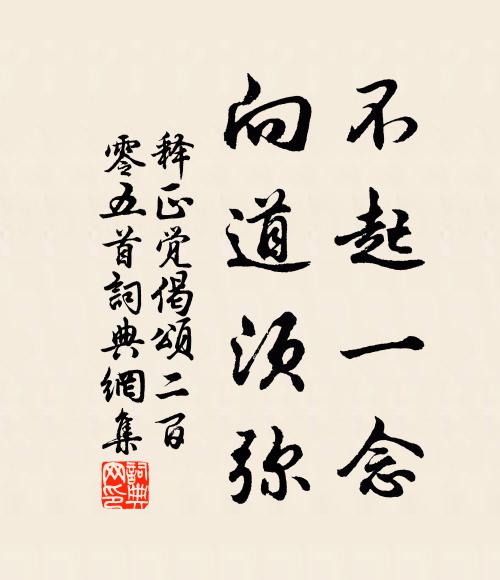 不起一念
向道须弥
释正觉偈颂二百
零五首詞典網集
詞典
网印